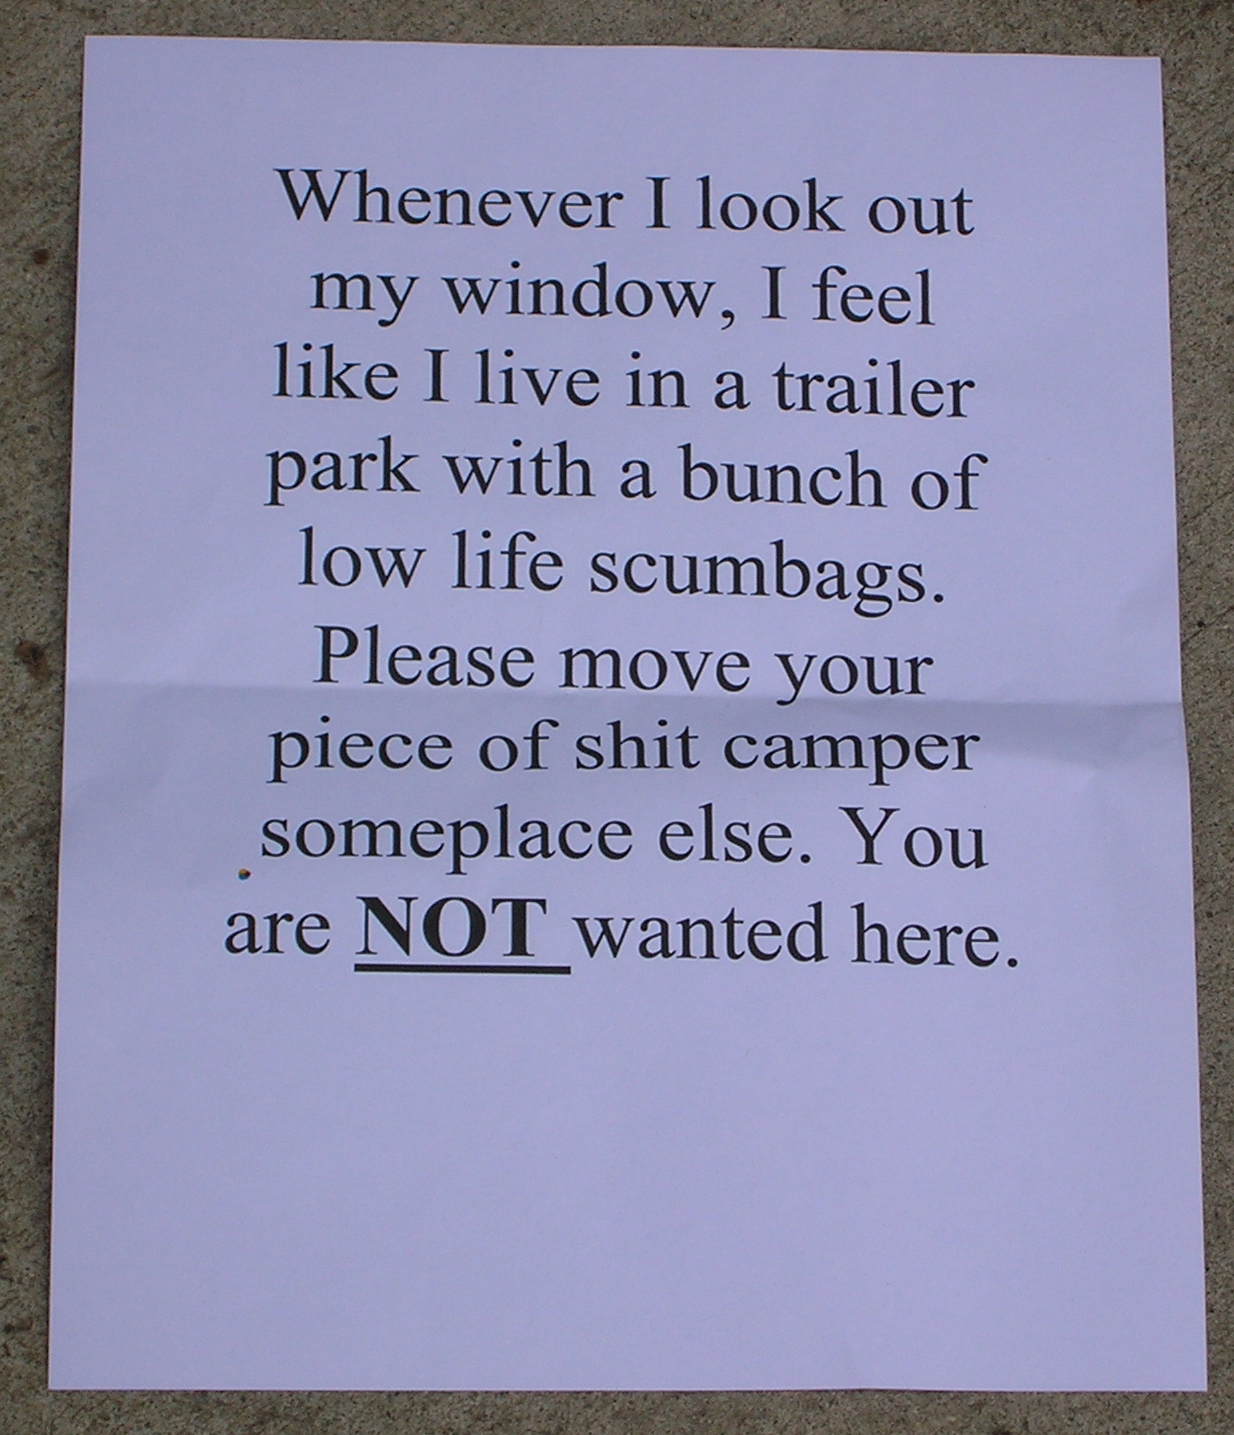 Whenever I look out
my window, I feel
like I live in a trailer
park with a bunch of
low life scumbags.
Please move your
piece of shit camper
someplace else. You
are NOT wanted here.